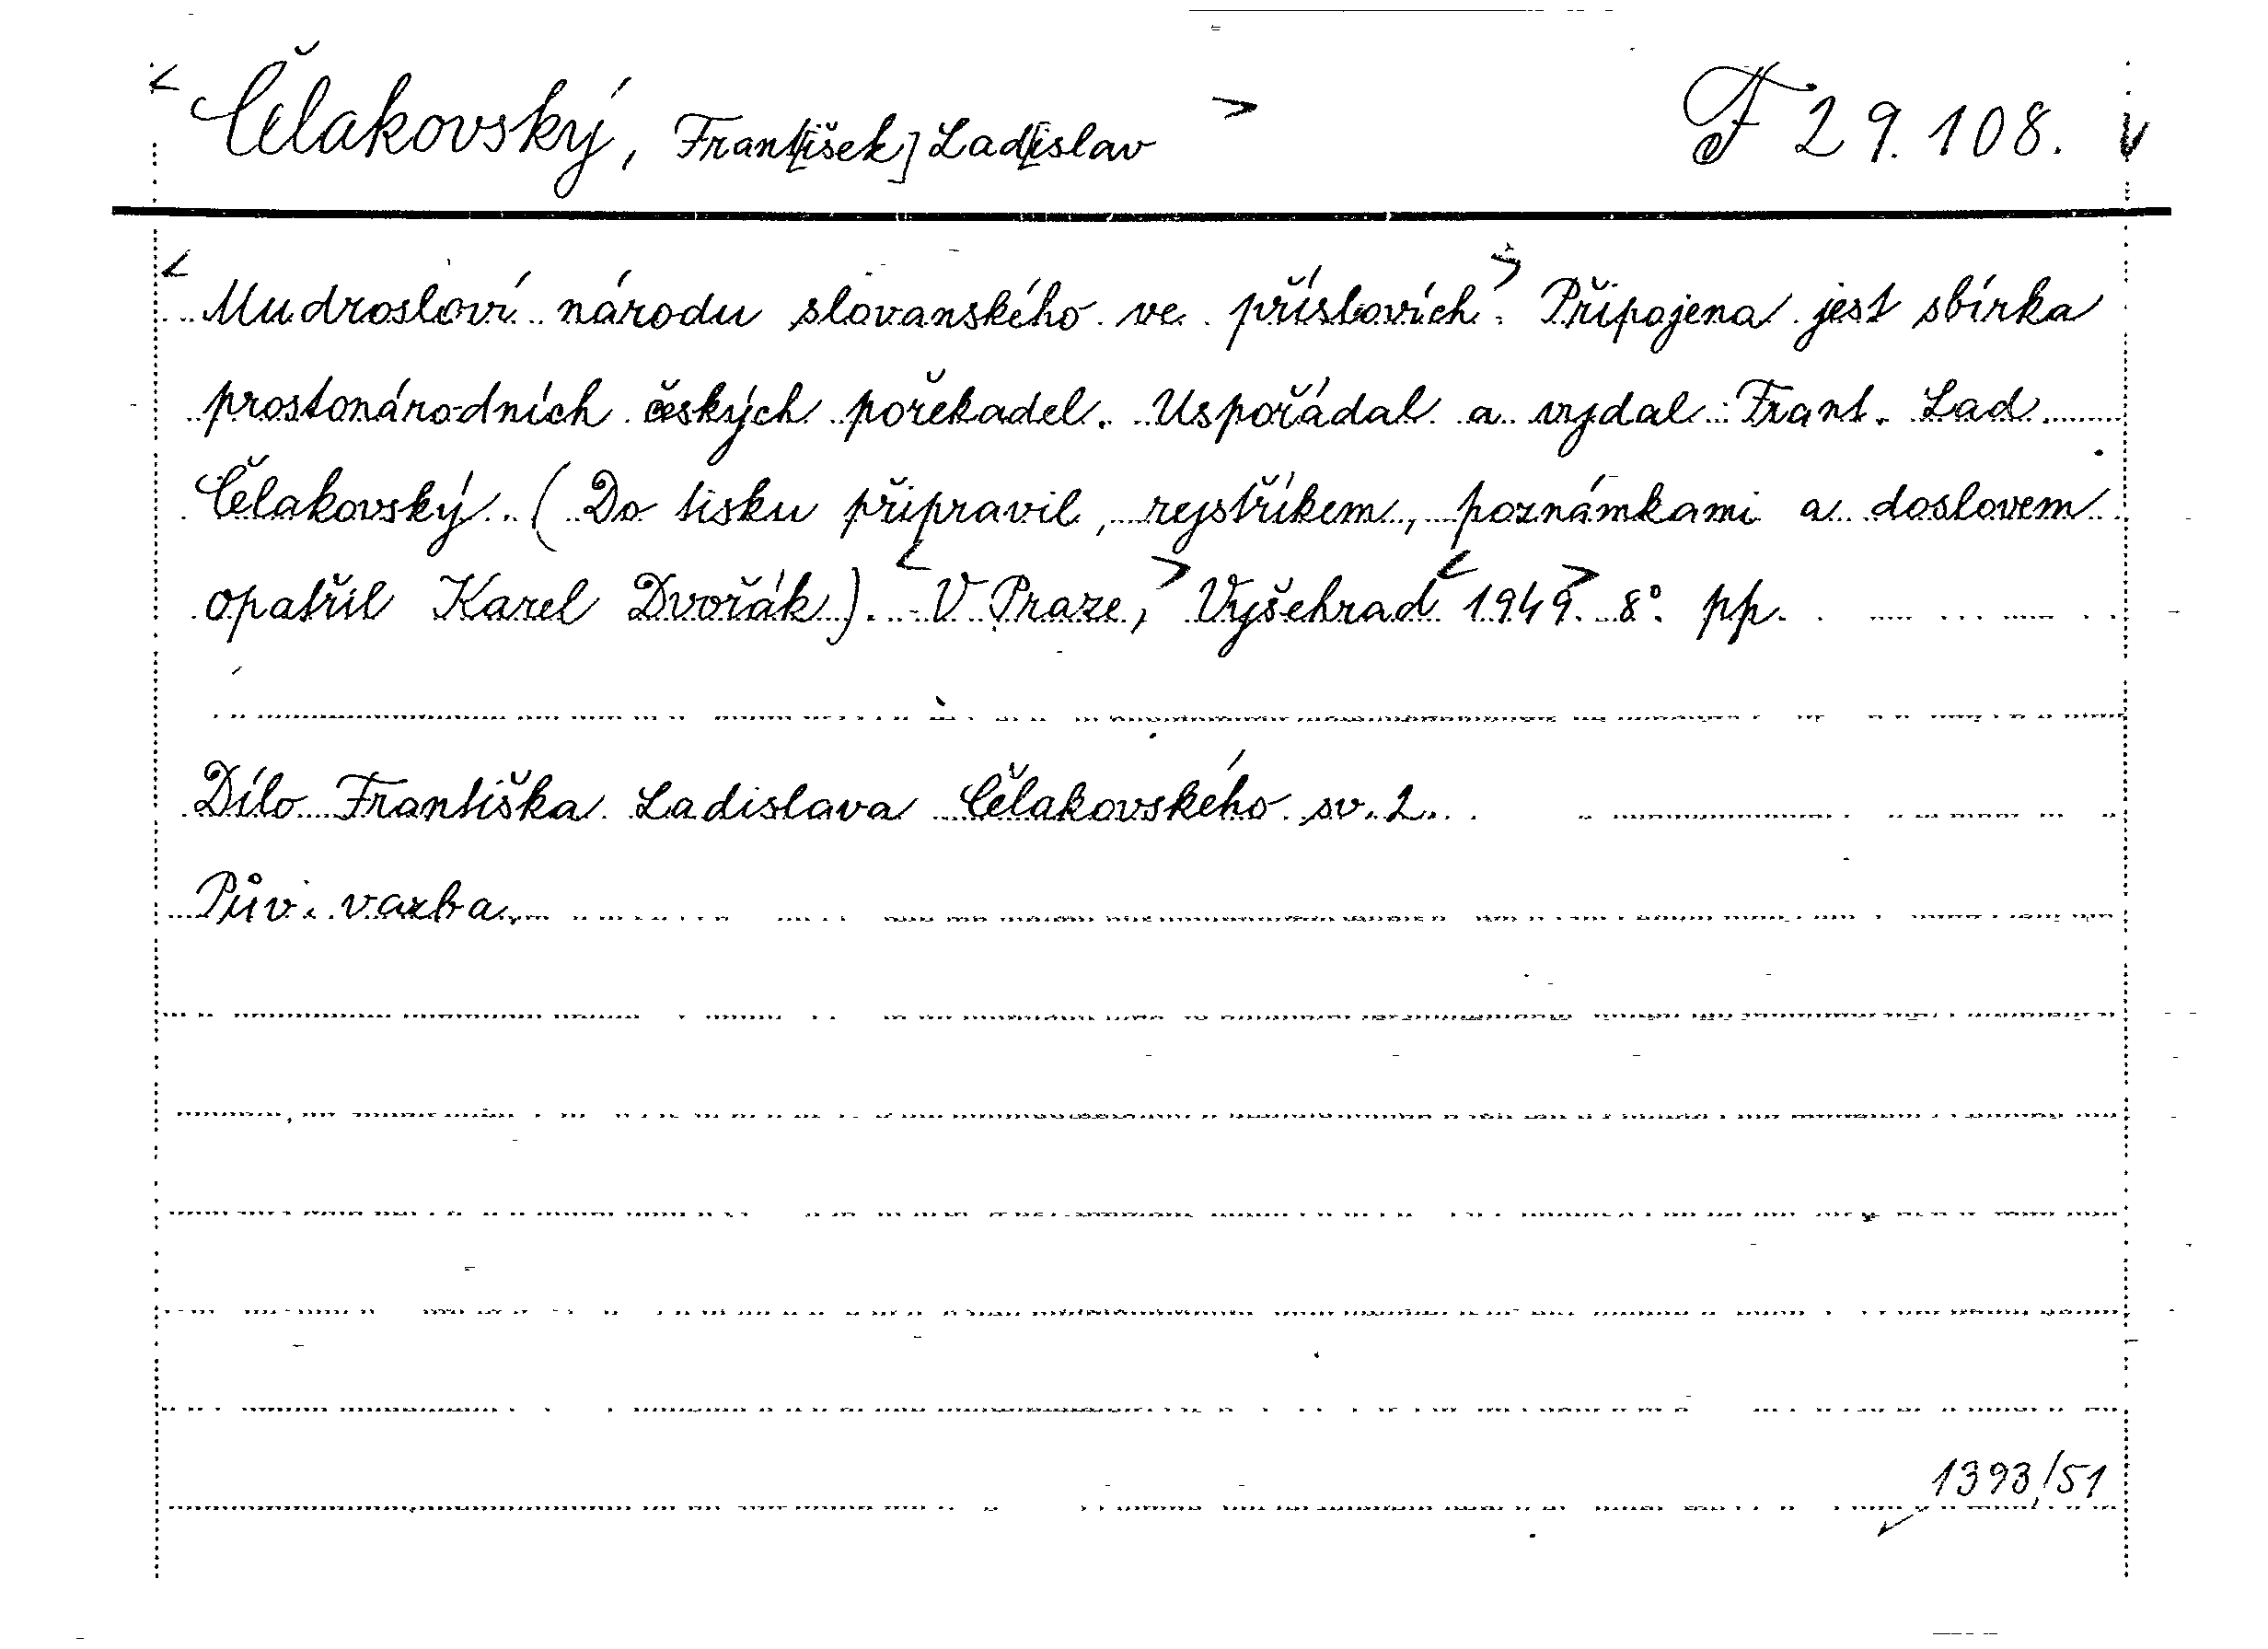 < Čelakovský, Frant[išek] Lad[islav > F 29.108. V
< Mudrosloví národu slovanského ve příslovích. > Připojena jest sbírka
prostonárodních českých pořekadel. Uspořádal a vydal Frant. Lad.
Čelakovský. (Do tisku připravil, rejstříkem, poznámkami a doslovem
opatřil Karel Dvořák). < V Praze, > Vyšehrad < 1949. > 8°. pp.
Dílo Františka Ladislava Čelakovského sv. 2.
Pův. vazba.
1393/51